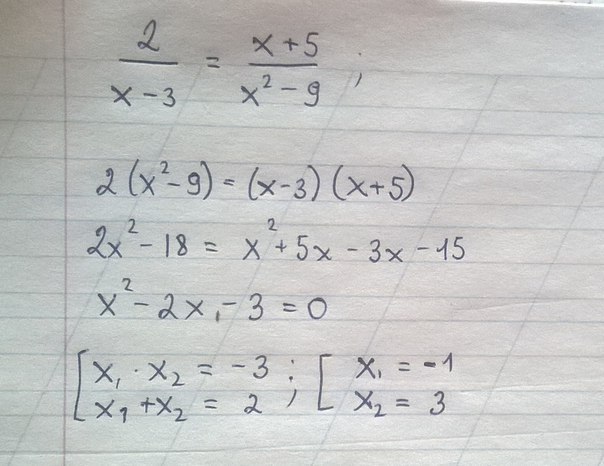 2/(x-3) = (x+5)/(x²-9);
2(x²-9) = (x-3)(x+5)
2x²-18 = x²+5x-3x-15
x²-2x-3=0
[x₁·x₂ = -3; [x₁ = -1
x₁+x₂ = 2 x₂ = 3